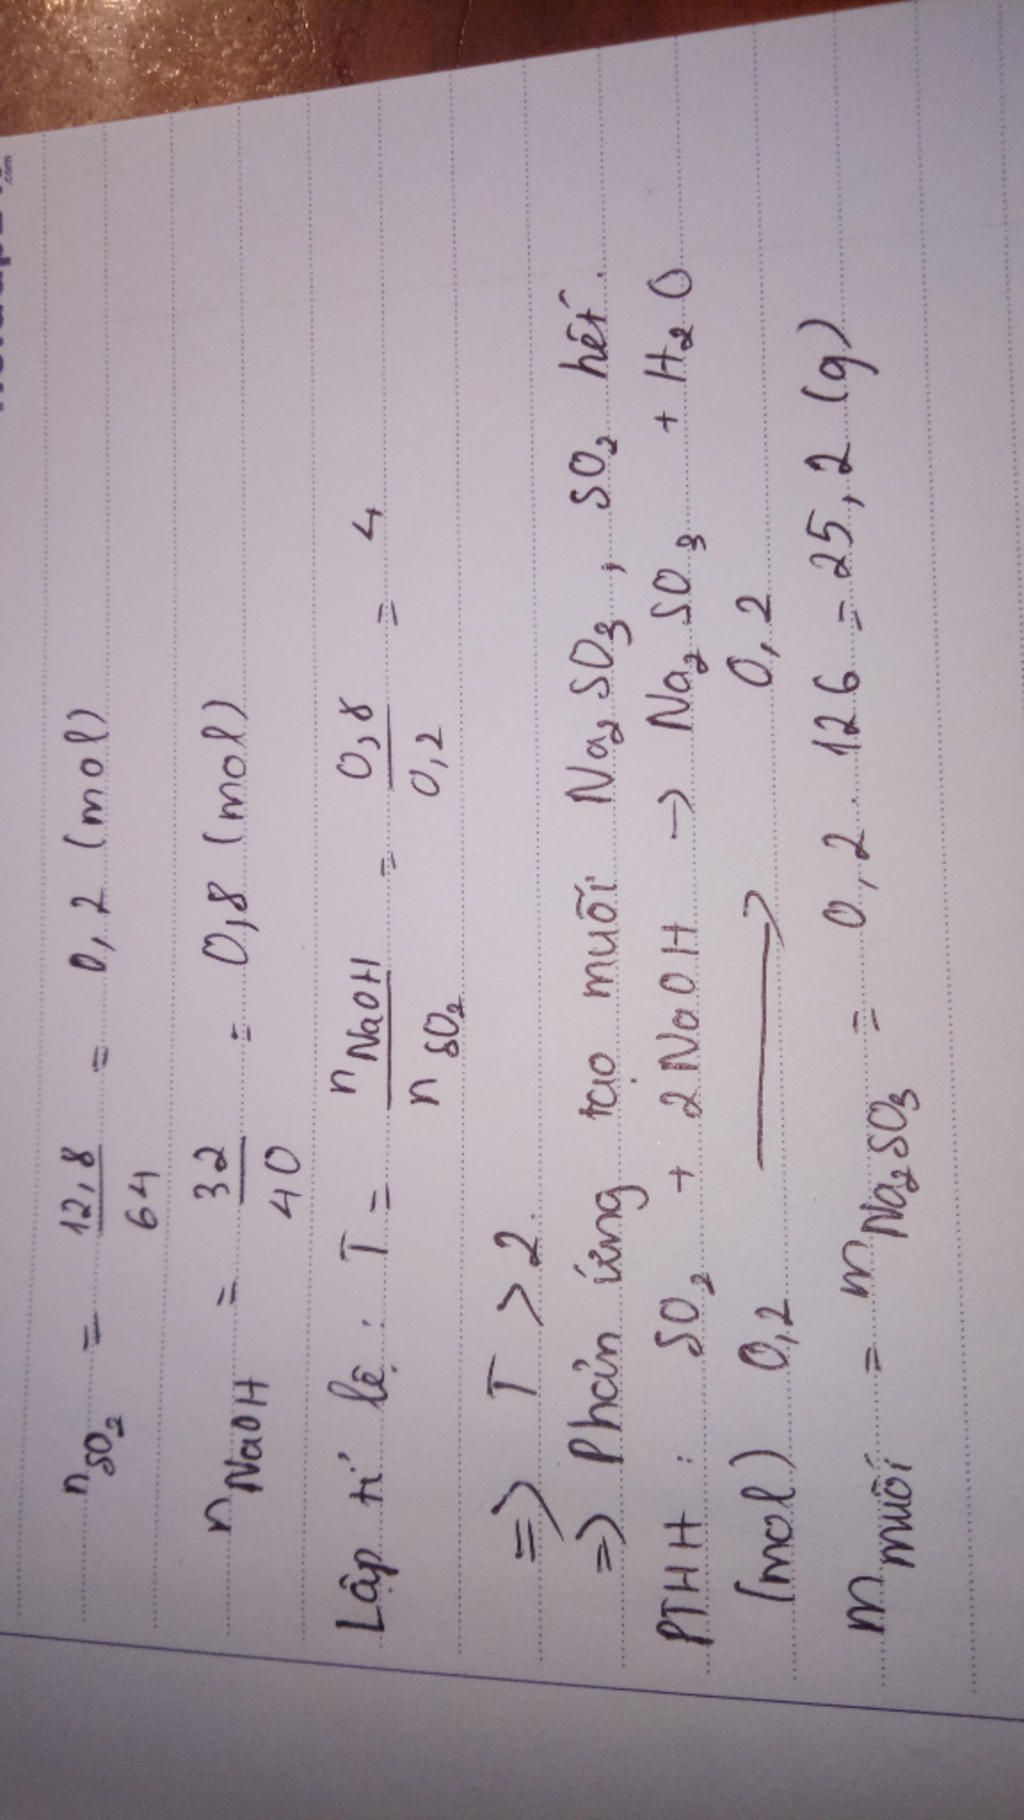 n SO₂ = 12,8/64 = 0,2 (mol)
n NaOH = 32/40 = 0,8 (mol)
Lập tỉ lệ : T = n NaOH / n SO₂ = 0,8/0,2 = 4
=> T > 2.
=> Phản ứng tạo muối Na₂SO₃, SO₂ hết.
PTHH : SO₂ + 2NaOH → Na₂SO₃ + H₂O
(mol) 0,2 ⟶ 0,2
m muối = m Na₂SO₃ = 0,2 . 126 = 25,2 (g)